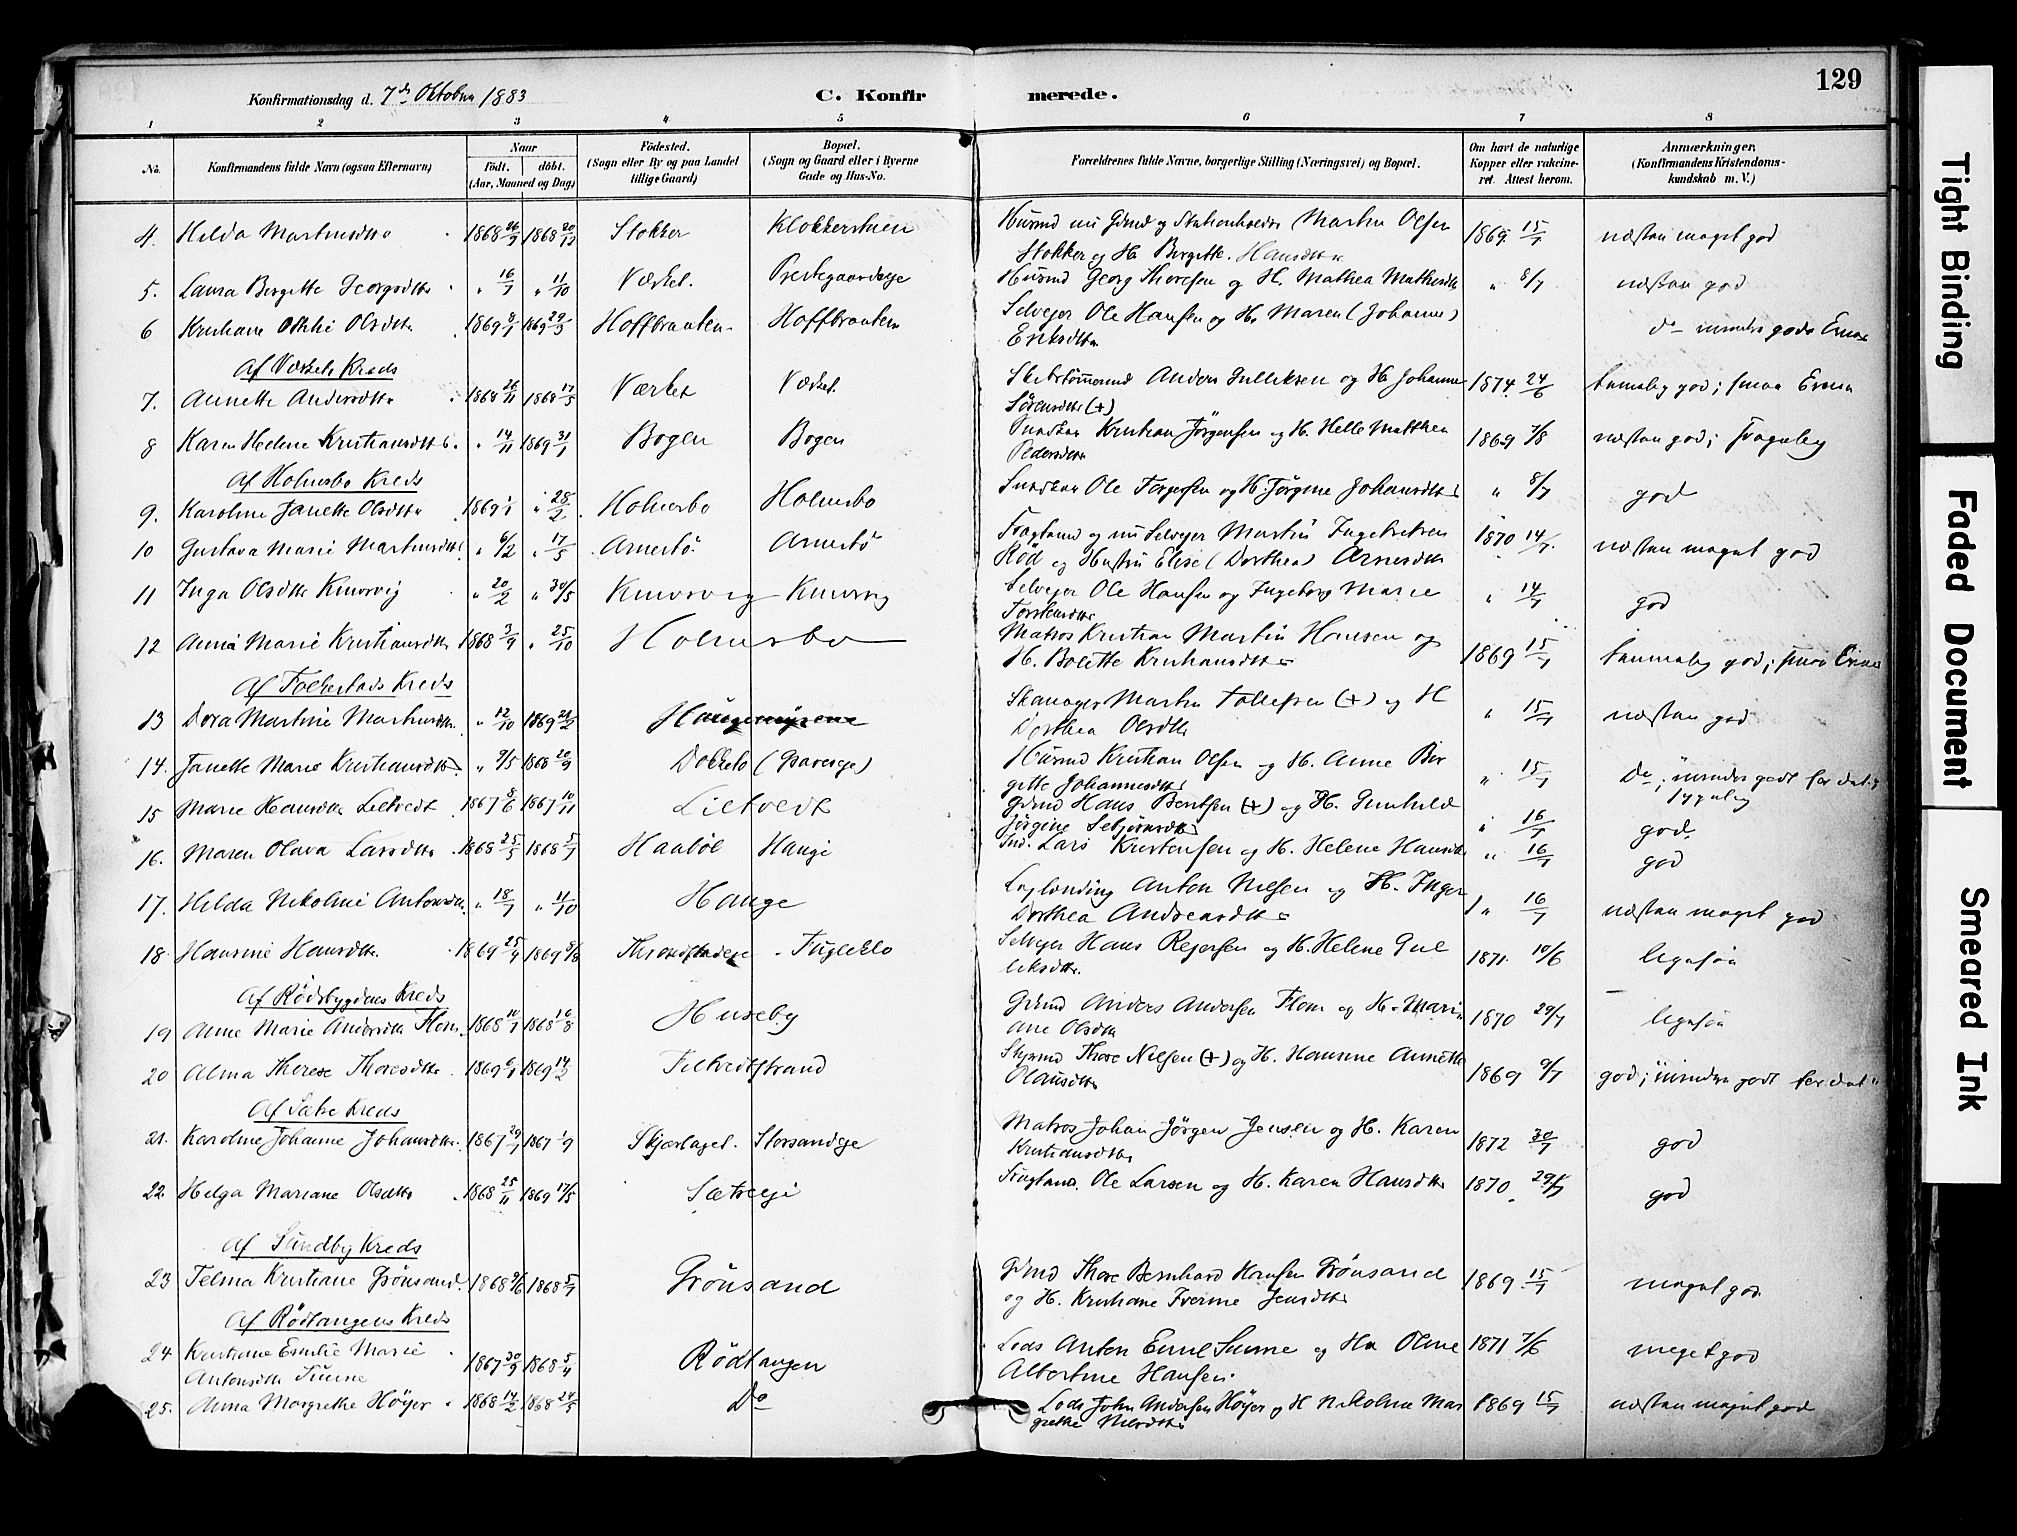 129
Konfirmationsdag d. 7de Oktober 1883
C. Konfirmerede.
1 2 3 4 5 6 7 8
No. Konfirmandens fulde Navn (ogsaa Efternavn) Naar født. døbt. (Aar, Maaned og Dag) Födested. (Sogn eller By og paa Landet tillige Gaard) Bopæl. (Sogn og Gaard eller i Byerne Gade og Hus-No. Forældrenes fulde Navne, borgerlige Stilling (Næringsvei) og Bopæl. Om havt de naturlige Kopper eller vakcineret. Attest herom. Anmærkninger. (Konfirmandens Kristendomskundskab m. V.)
4. Hilda Martinsdtr 1868 26/9 1868 20/12 Stokker Klokkerstuen Husmd nu Gdmd og Stationholder Martin Olsen 1869 15/7 næsten meget god
Stokker og H. Birgitte Hansdtr
5. Laura Birgitte Georgsdtr " 16/7 " 11/10 Værket. Prestegaardseje Husmd Georg Thoresen og H. Mathea Mathisdtr " 8/7 næsten god
6 Kristiane Othilie Olsdtr 1869 8/1 1869 29/3 Hoffbrauten Hoffbrauten Selvejer Ole Hansen og H. Maren (Johanne)
Eriksdtr do mindre gode Evner
Af Værkets Kreds
7. Annette Andersdtr 26/11 17/5 Værket Værket Skibstømmermd Anders Gulliksen og H. Johanne 1874 24/6 temmelig god; smaa Evner
Sörensdtr (+)
8 Karen Helene Kristiansdtr " 14/11 1869 31/1 Bogen Bogen Snedker Kristian Jörgensen og H. Helle Matthea 1869 7/8 næsten god; svagelig
Pedersdtr
Af Holmsbo Kreds
9. Karoline Janette Olsdtr 1869 " 28/2 Holmsbo Holmsbo Snedker Ole Torgersen og H. Jörgine Johansdtr " 8/7 god
10 Gustava Marie Martinsdtr " 6/2 " 17/5 Arnestö Arnestö Fragtmd og nu Selvejer Martin Ingebretsen 1870 14/7 næsten meget god
Röd og Hustru Elise (Dorthea) Arnesdtr
11 Inga Olsdtr Knivsvig " 20/2 " 30/5 Knivsvig Knivsvig Selvejer Ole Hansen og Ingeborg Marie " 14/7 god
Torstensdtr
12 Anna Marie Kristiansdtr 1868 3/9 " 25/10 Holmsbo Matros Kristian Martin Hansen og
H. Bolette Kristiansdtr 1869 15/7 temmelig god; smaa Evner
Af Tofterstads Kreds
13 Dora Martine Martinsdtr " 12/10 1869 Haugemyrene Skomager Martin Tollefsen (+) og H " 15/7 næsten god
Dorthea Olsdtr
14. Janette Marie Kristiansdtr " 9/5 1868 20/9 Dokkelo (Graverje) Husmd Kristian Olsen og H. Anne Bir " 15/7 Do; mindre godt fordi
gitte Johannesdtr sygelig
15 Marie Hansdtr Lietvedt 1867 8/6 1867 10/11 Lietvedt Gdmd Hans Berntsen (+) og H. Gunhild
Jörgine Sebjörnsdtr " 16/7 god
16. Maren Olava Larsdtr 1868 25/5 1868 5/7 Haaböl Haugi Ind. Lars Kristensen og H. Helene Hansdtr " 16/7 god
17. Hilda Nikoline Antonsdtr " 18/7 " 11/10 Hauge Anton Nielsen og H. Inger
Dorthea Andreasdtr " 16/7 næsten meget god
18. Hansine Hansdtr. 1869 25/4 1869 8/8 Fugleklo Selvejer Hans Rejersen og H. Helene Gul 1871 10/6 ligesaa
liksdtr
Af Rödsbygdens Kreds
19 Anne Marie Andersdtr Flom 1868 11/7 1868 16/8 Huseby Gdmd Anders Andersen Flom og H. Mari 1870 29/7 ligesaa
ane Olsdtr
20 Alma Therese Thoresdtr 1869 6/1 1869 14/2 Filtvedtstrand Thore Nielsen (+) og H. Hansine Annette 1869 9/7 god; mindre godt
Olausdtr
Af Sætre Kreds
21. Karoline Johanne Johansdtr 1867 29/7 1867 1/9 Skjærlaget. Storsandeje Matros Johan Jörgen Jensen og H. Karen 1872 30/7 god
Kristiansdtr
22. Helga Mariane Olsdtr 1868 25/11 1869 17/5 Sætreeje Fragtmd. Ole Larsen og H. Karen Hansdtr 1870 29/7 god
Af Sundby Kreds
23 Telma Kristiane Grönsand 1868 9/6 1868 5/7 Grönsand Gdmd Thore Bernhard Hansen Grönsand 1869 15/7 meget god
og H. Kristiane Iverine Jensdtr
Af Rödtangens Kreds
24 Kristiane Emilie Marie 1867 30/9 1868 5/4 Rödtangen Lods Anton Emil Suune og Hu Oline 1871 7/6 meget god
Antonsdtr Suune Albertine Hansen.
25. Anna Margrethe Höyer 1868 14/2 1868 24/5 Do Lods John Andersen Höyer og H Nikoline Mar 1869 15/7 næsten meget god
grethe Nilsdtr
Tight Binding
Faded Document
Smeared Ink